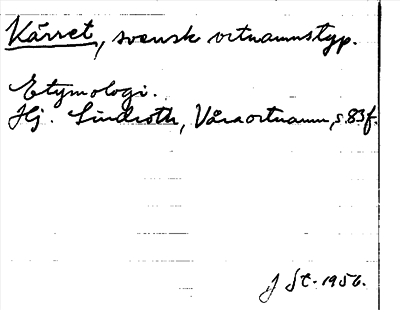 Kärret, svensk ortnamnstyp.
Etymologi.
Hj. Lindroth, Våra ortnamn, s. 83 f.
J St. 1956.